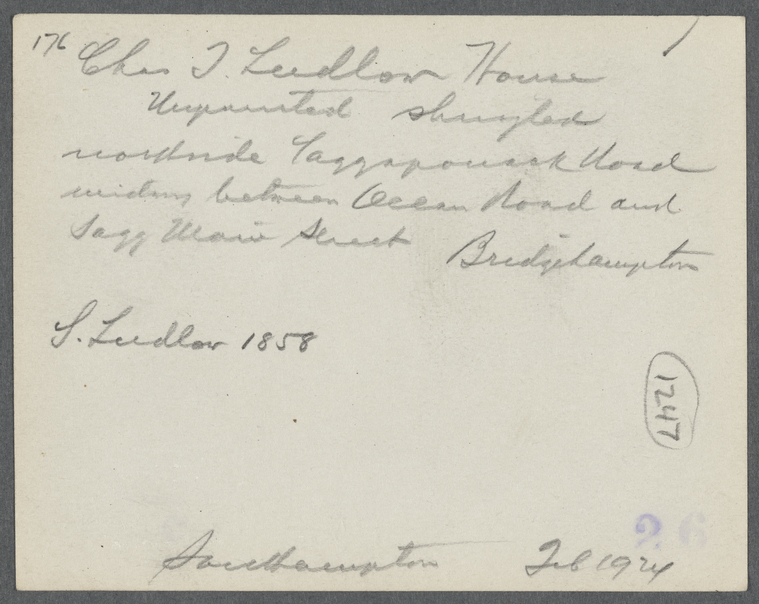 176 Chas T. Ludlow House
Unpainted shingled
northside Saggaponack Road
midway between Ocean Road and
Sagg Main Street Bridgehampton
S. Ludlow 1858
1247
26
Southampton Feb 1924